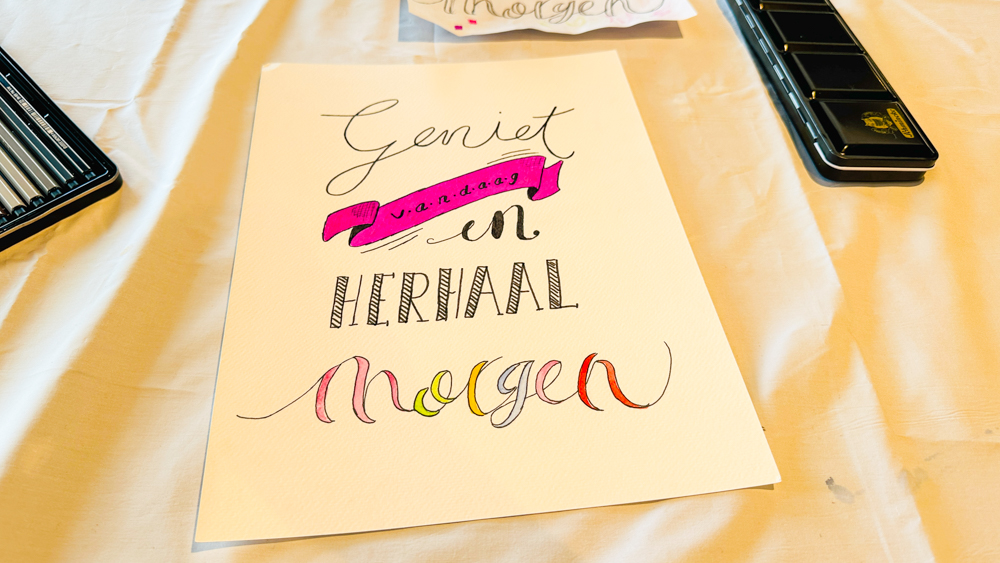 morgen
Geniet
v·a·n·d·a·a·g
en
HERHAAL
morgen